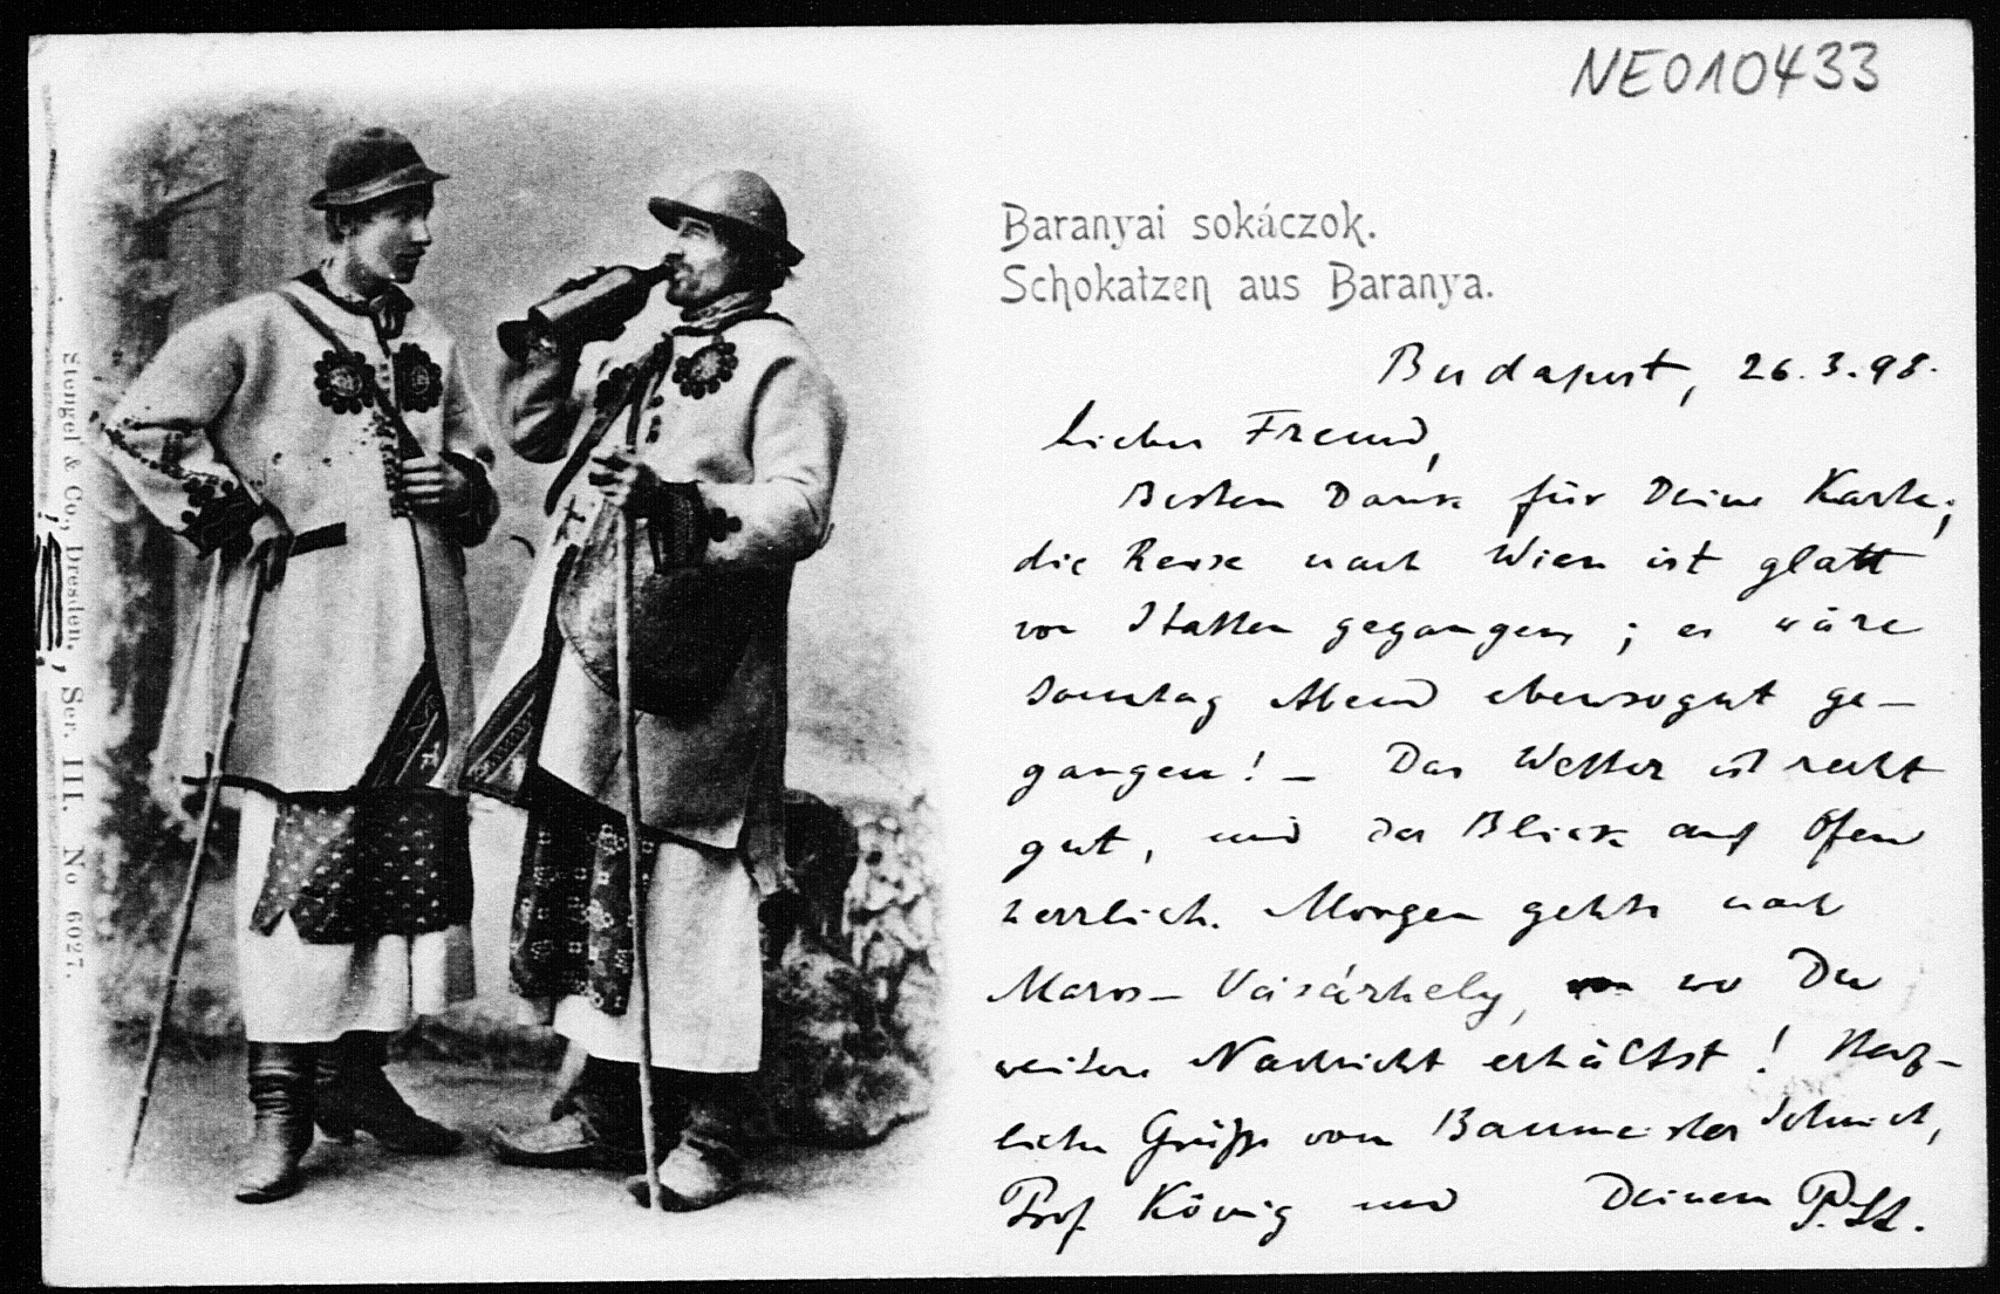 NE010433
Baranyai sokáczok.
Schokatzen aus Baranya.
Budapest, 26.3.98.
Lieber Freund,
Besten Dank für Deine Karte;
die Reise nach Wien ist glatt
von Statten gegangen; es wäre
Sonntag Abend ebensogut ge-
gangen! – Das Wetter ist recht
gut, und der Blick auf Ofen
herrlich. Morgen gehts nach
Maros-Vásárhely, wo Du
weitere Nachricht erhältst! Herz-
liche Grüße vom Baumeister
Prof. König und Deinem P. St.
Stengel & Co., Dresden, Ser. III. No 6027.